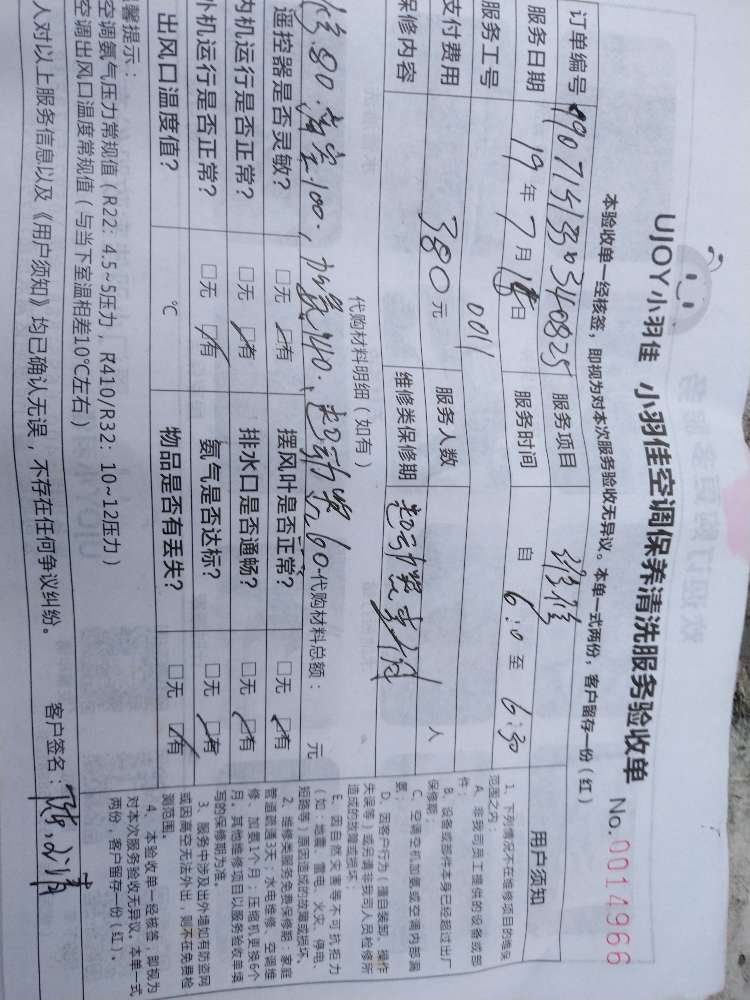 UJOY小羽佳 小羽佳空调保养清洗服务验收单 No.0014966
本验收单一经核签，即视为对本次服务验收无异议。本单一式两份，客户留存一份（红）
订单编号 服务项目 维修
服务日期 19年7月18日 服务时间 自 6:0 至 6:30
服务工号 0011
支付费用 380元 服务人数 人
保修内容 维修类保修期
代购材料明细（如有）
修80. 高空100. 加氟140. 起动器60 代购材料总额： 元
遥控器是否灵敏？ □无 □有 摆风叶是否正常？ □无 □有
内机运行是否正常？ □无 □有 排水口是否通畅？ □无 □有
外机运行是否正常？ □无 □有 氨气是否达标？ □无 □有
出风口温度值？ ℃ 物品是否有丢失？ □无 □有
馨提示：
空调氨气压力常规值（R22：4.5~5压力，R410/R32：10~12压力）
空调出风口温度常规值（与当下室温相差10℃左右）
人对以上服务信息以及《用户须知》均已确认无误，不存在任何争议纠纷。
客户签名：
用户须知
1、下列情况不在维修项目的维保
范围之内：
A、非我司员工提供的设备或部
件；
B、设备或部件本身已经超过出厂
保修期；
C、空调空机加氨或空调内部漏
氨；
D、因客户行为（擅自装卸、操作
失误等）或应请非我司人员检修所
造成的故障或损坏；
E、因自然灾害等不可抗拒力
（如：地震、雷电、火灾、停电、
短路等）原因造成的故障或损坏。
2、维修类服务免费保修期：家庭
管道疏通3天；水电维修、空调维
修、加氨1个月；压缩机更换6个
月。其他维修项目以服务验收单填
写的保修期为准。
3、服务中涉及出外墙如有防盗网
或因高空无法外出，则不在免费检
测范围。
4、本验收单一经核签，即视为
对本次服务验收无异议，本单一式
两份，客户留存一份（红）。